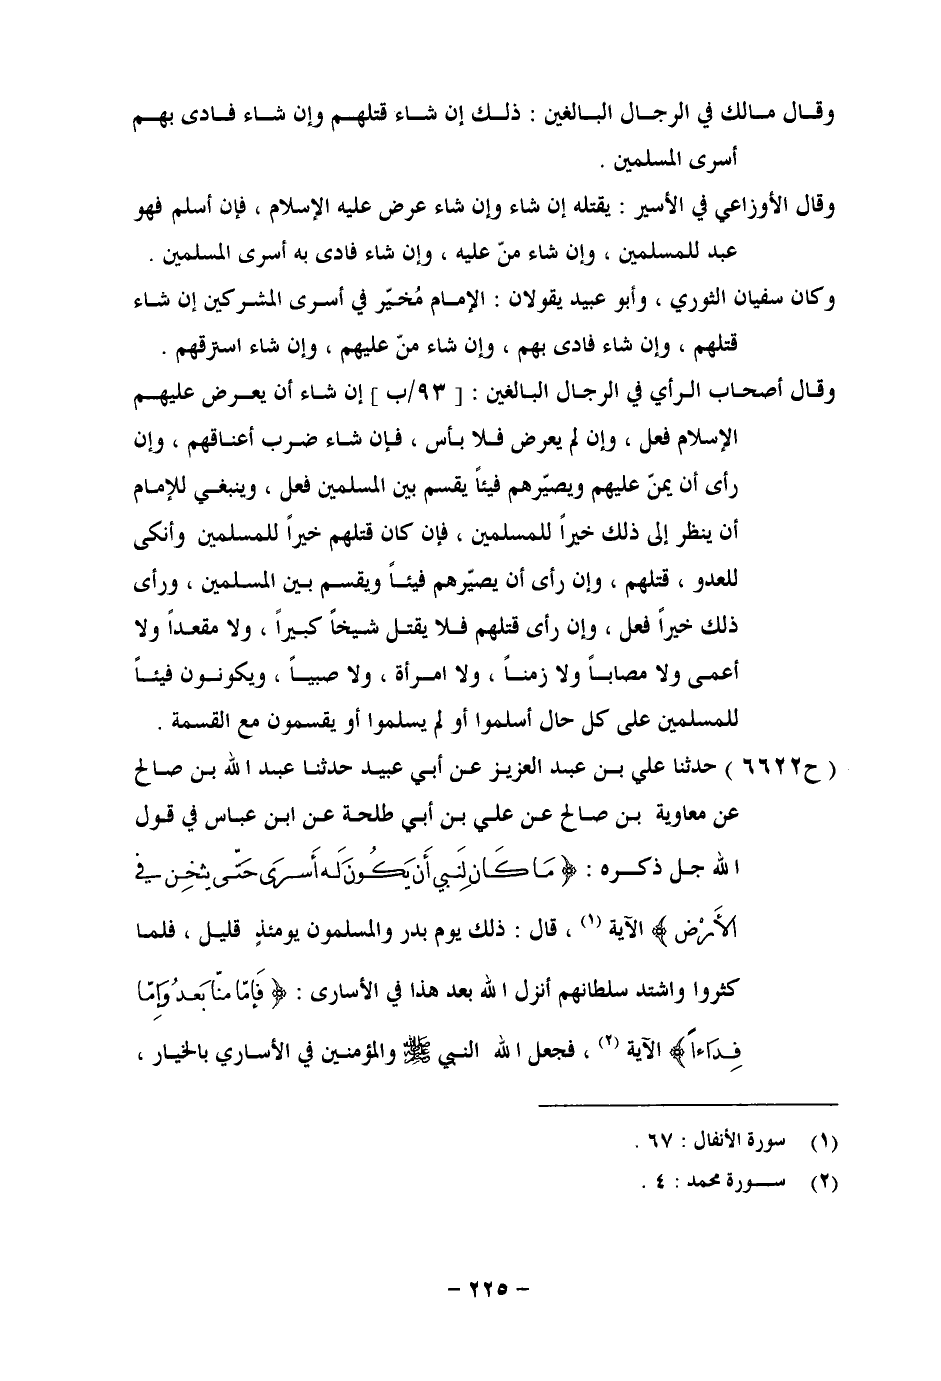 وقـال مـالك في الرجـال البـالغين : ذلـك إن شـاء قتلهـم وإن شـاء فـادى بهـم
أسرى المسلمين .
وقال الأوزاعي في الأسير : يقتله إن شاء وإن شاء عرض عليه الإسلام ، فإن أسلم فهو
عبد للمسلمين ، وإن شاء منّ عليه ، وإن شاء فادى به أسرى المسلمين .
وكان سفيان الثوري ، وأبو عبيد يقولان : الإمام مُخيّر في أسرى المشركين إن شاء
قتلهم ، وإن شاء فادى بهم ، وإن شاء منّ عليهم ، وإن شاء استرقهم .
وقـال أصحـاب الـرأي في الرجـال البـالغين : [ ٩٣/ب ] إن شـاء أن يعـرض عليهـم
الإسلام فعل ، وإن لم يعرض فـلا بـأس ، فـإن شـاء ضـرب أعنـاقهم ، وإن
رأى أن يمنّ عليهم ويصيّرهم فيئاً يقسم بين المسلمين فعل ، وينبغي للإمام
أن ينظر إلى ذلك خيراً للمسلمين ، فإن كان قتلهم خيراً للمسلمين وأنكى
للعدو ، قتلهم ، وإن رأى أن يصيّرهم فيئـاً ويقسـم بـين المسـلمين ، ورأى
ذلك خيراً فعل ، وإن رأى قتلهم فـلا يقتـل شـيخاً كبـيراً ، ولا مقعـداً ولا
أعمـى ولا مصابـاً ولا زمنـاً ، ولا امـرأة ، ولا صبيـاً ، ويكونـون فيئـاً
للمسلمين على كل حال أسلموا أو لم يسلموا أو يقسمون مع القسمة .
( ح٦٦٢٢ ) حدثنا علي بـن عبـد العزيـز عـن أبـي عبيـد حدثنـا عبـد الله بـن صـالح
عن معاوية بـن صـالح عـن علـي بـن أبـي طلحـة عـن ابـن عبـاس في قـول
الله جـل ذكـره : ﴿ مَا كَانَ لِنَبِي أَن يَكُونَ لَه أَسرَى حَتَّى يثخِن فِي
الأَرْض ﴾ الآية (١) ، قال : ذلك يوم بدر والمسلمون يومئذٍ قليـل ، فلمـا
كثروا واشتد سلطانهم أنزل الله بعد هذا في الأسارى : ﴿ فَإِمَّا منَّا بَعدُ وَإِمَّا
فِـدَاءاً ﴾ الآية (٢) ، فجعل الله النبي ﷺ والمؤمنـين في الأسـاري بالخيـار ،
(١) سورة الأنفال : ٦٧ .
(٢) سـورة محمد : ٤ .
- ٢٢٥ -